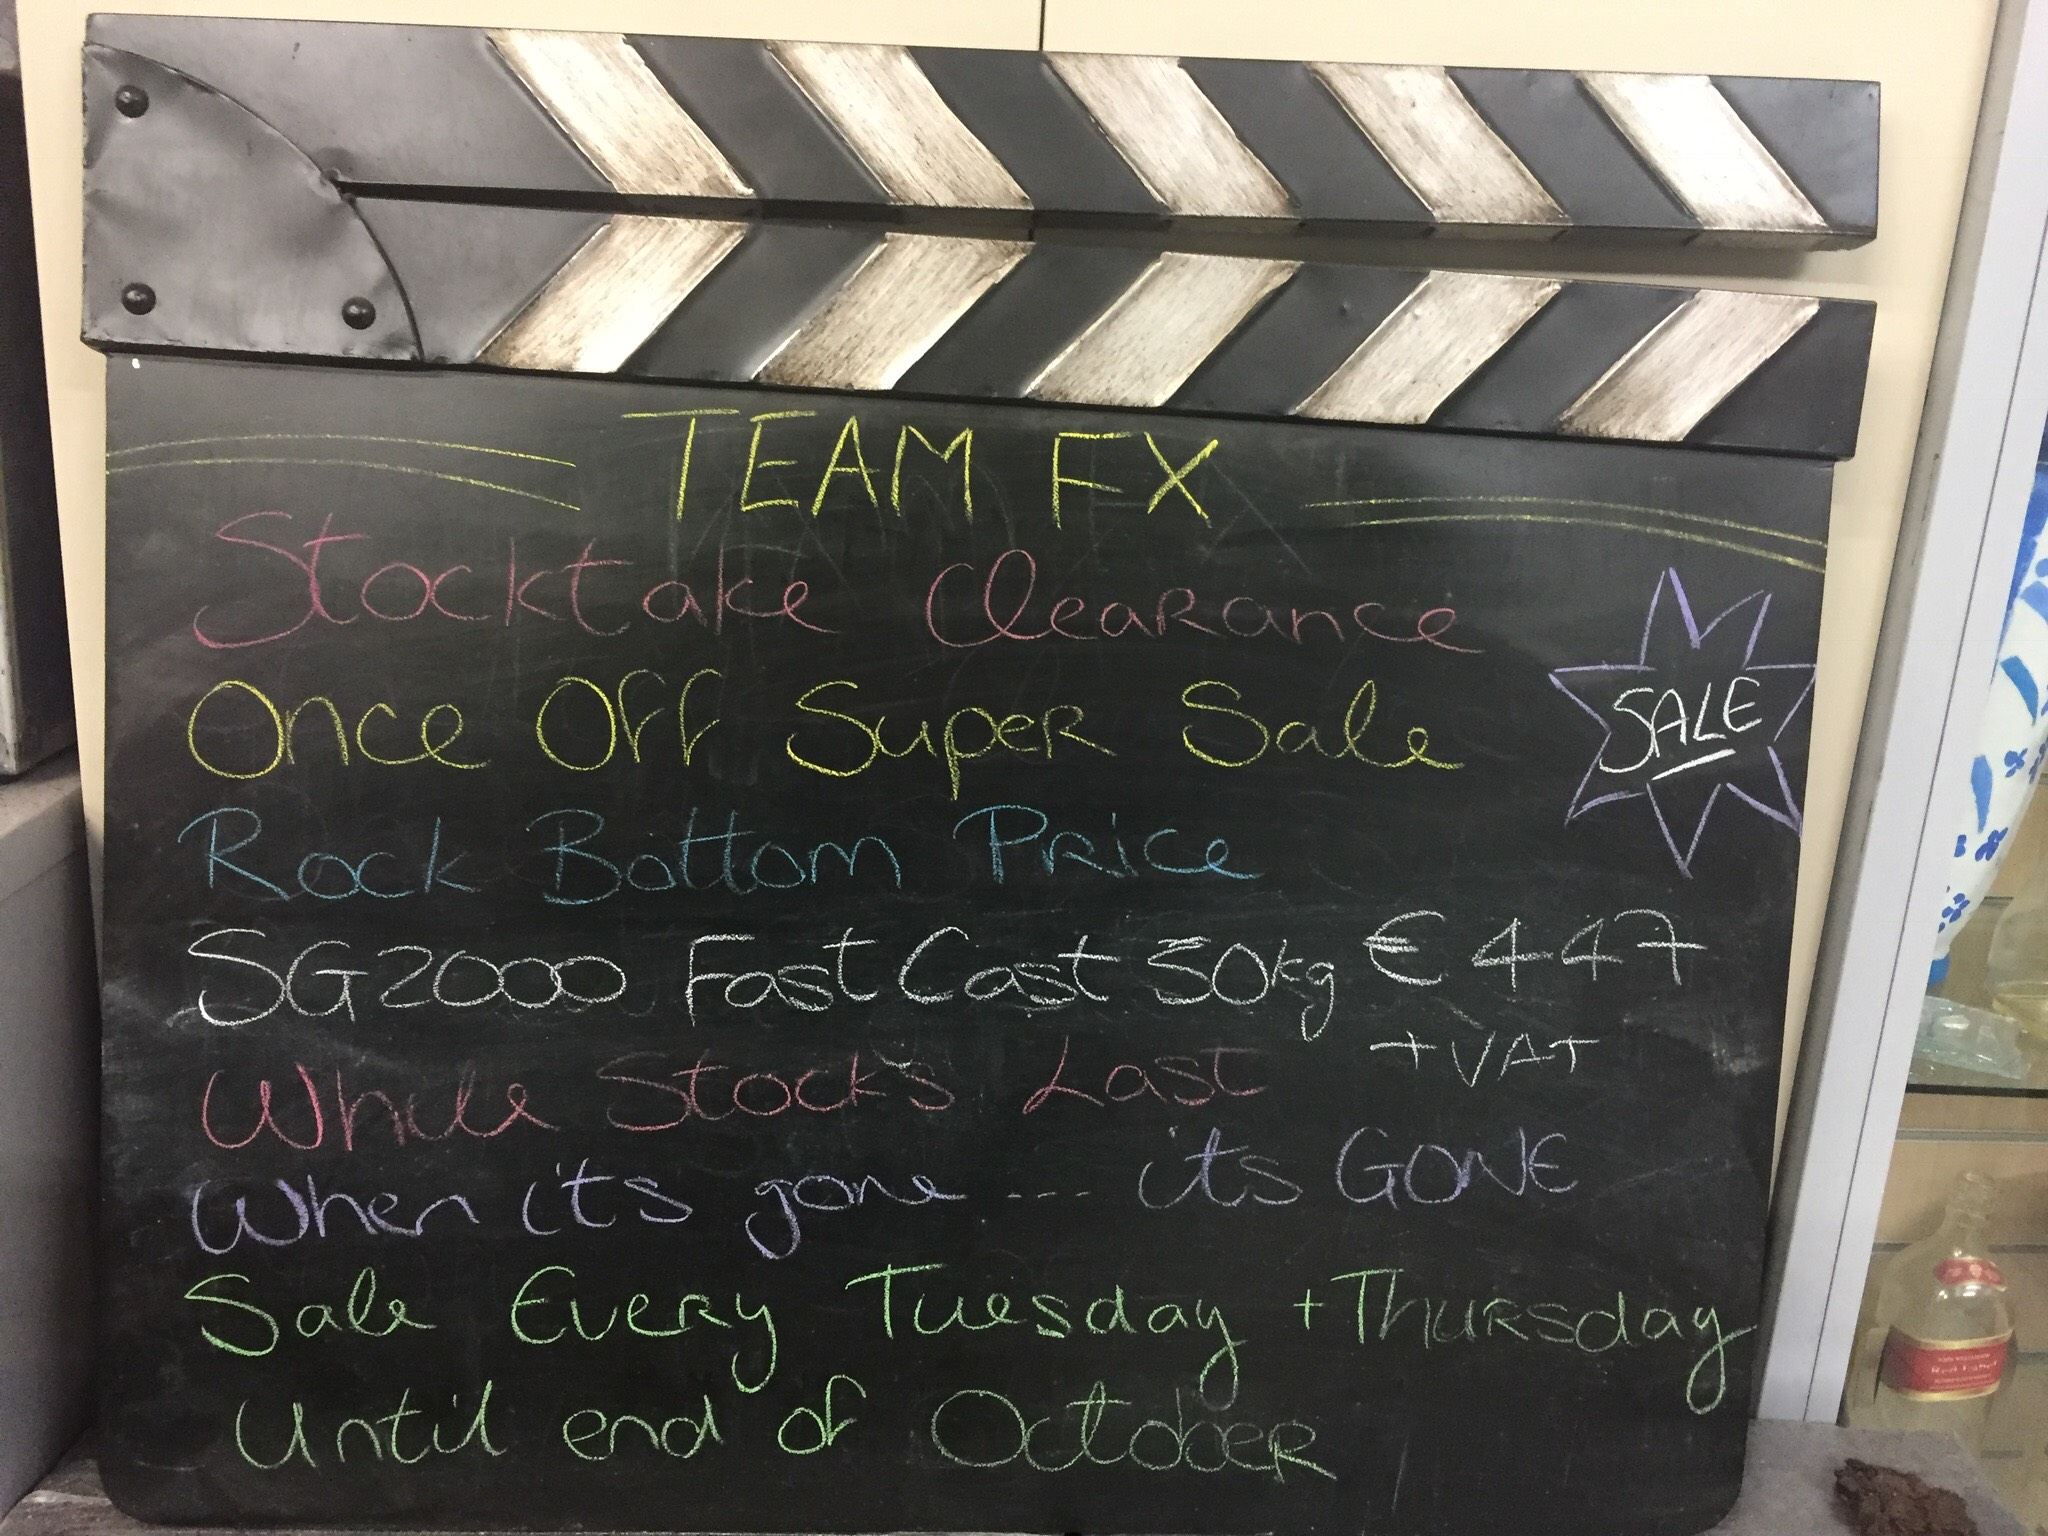 TEAM FX
Stocktake Clearance
Once Off Super Sale
SALE
Rock Bottom Price
SG2000 Fast Cast 50kg € 447
+ VAT
While Stocks Last
When it's gone ---- it's GONE
Sale Every Tuesday + Thursday
Until end of October
Red Label